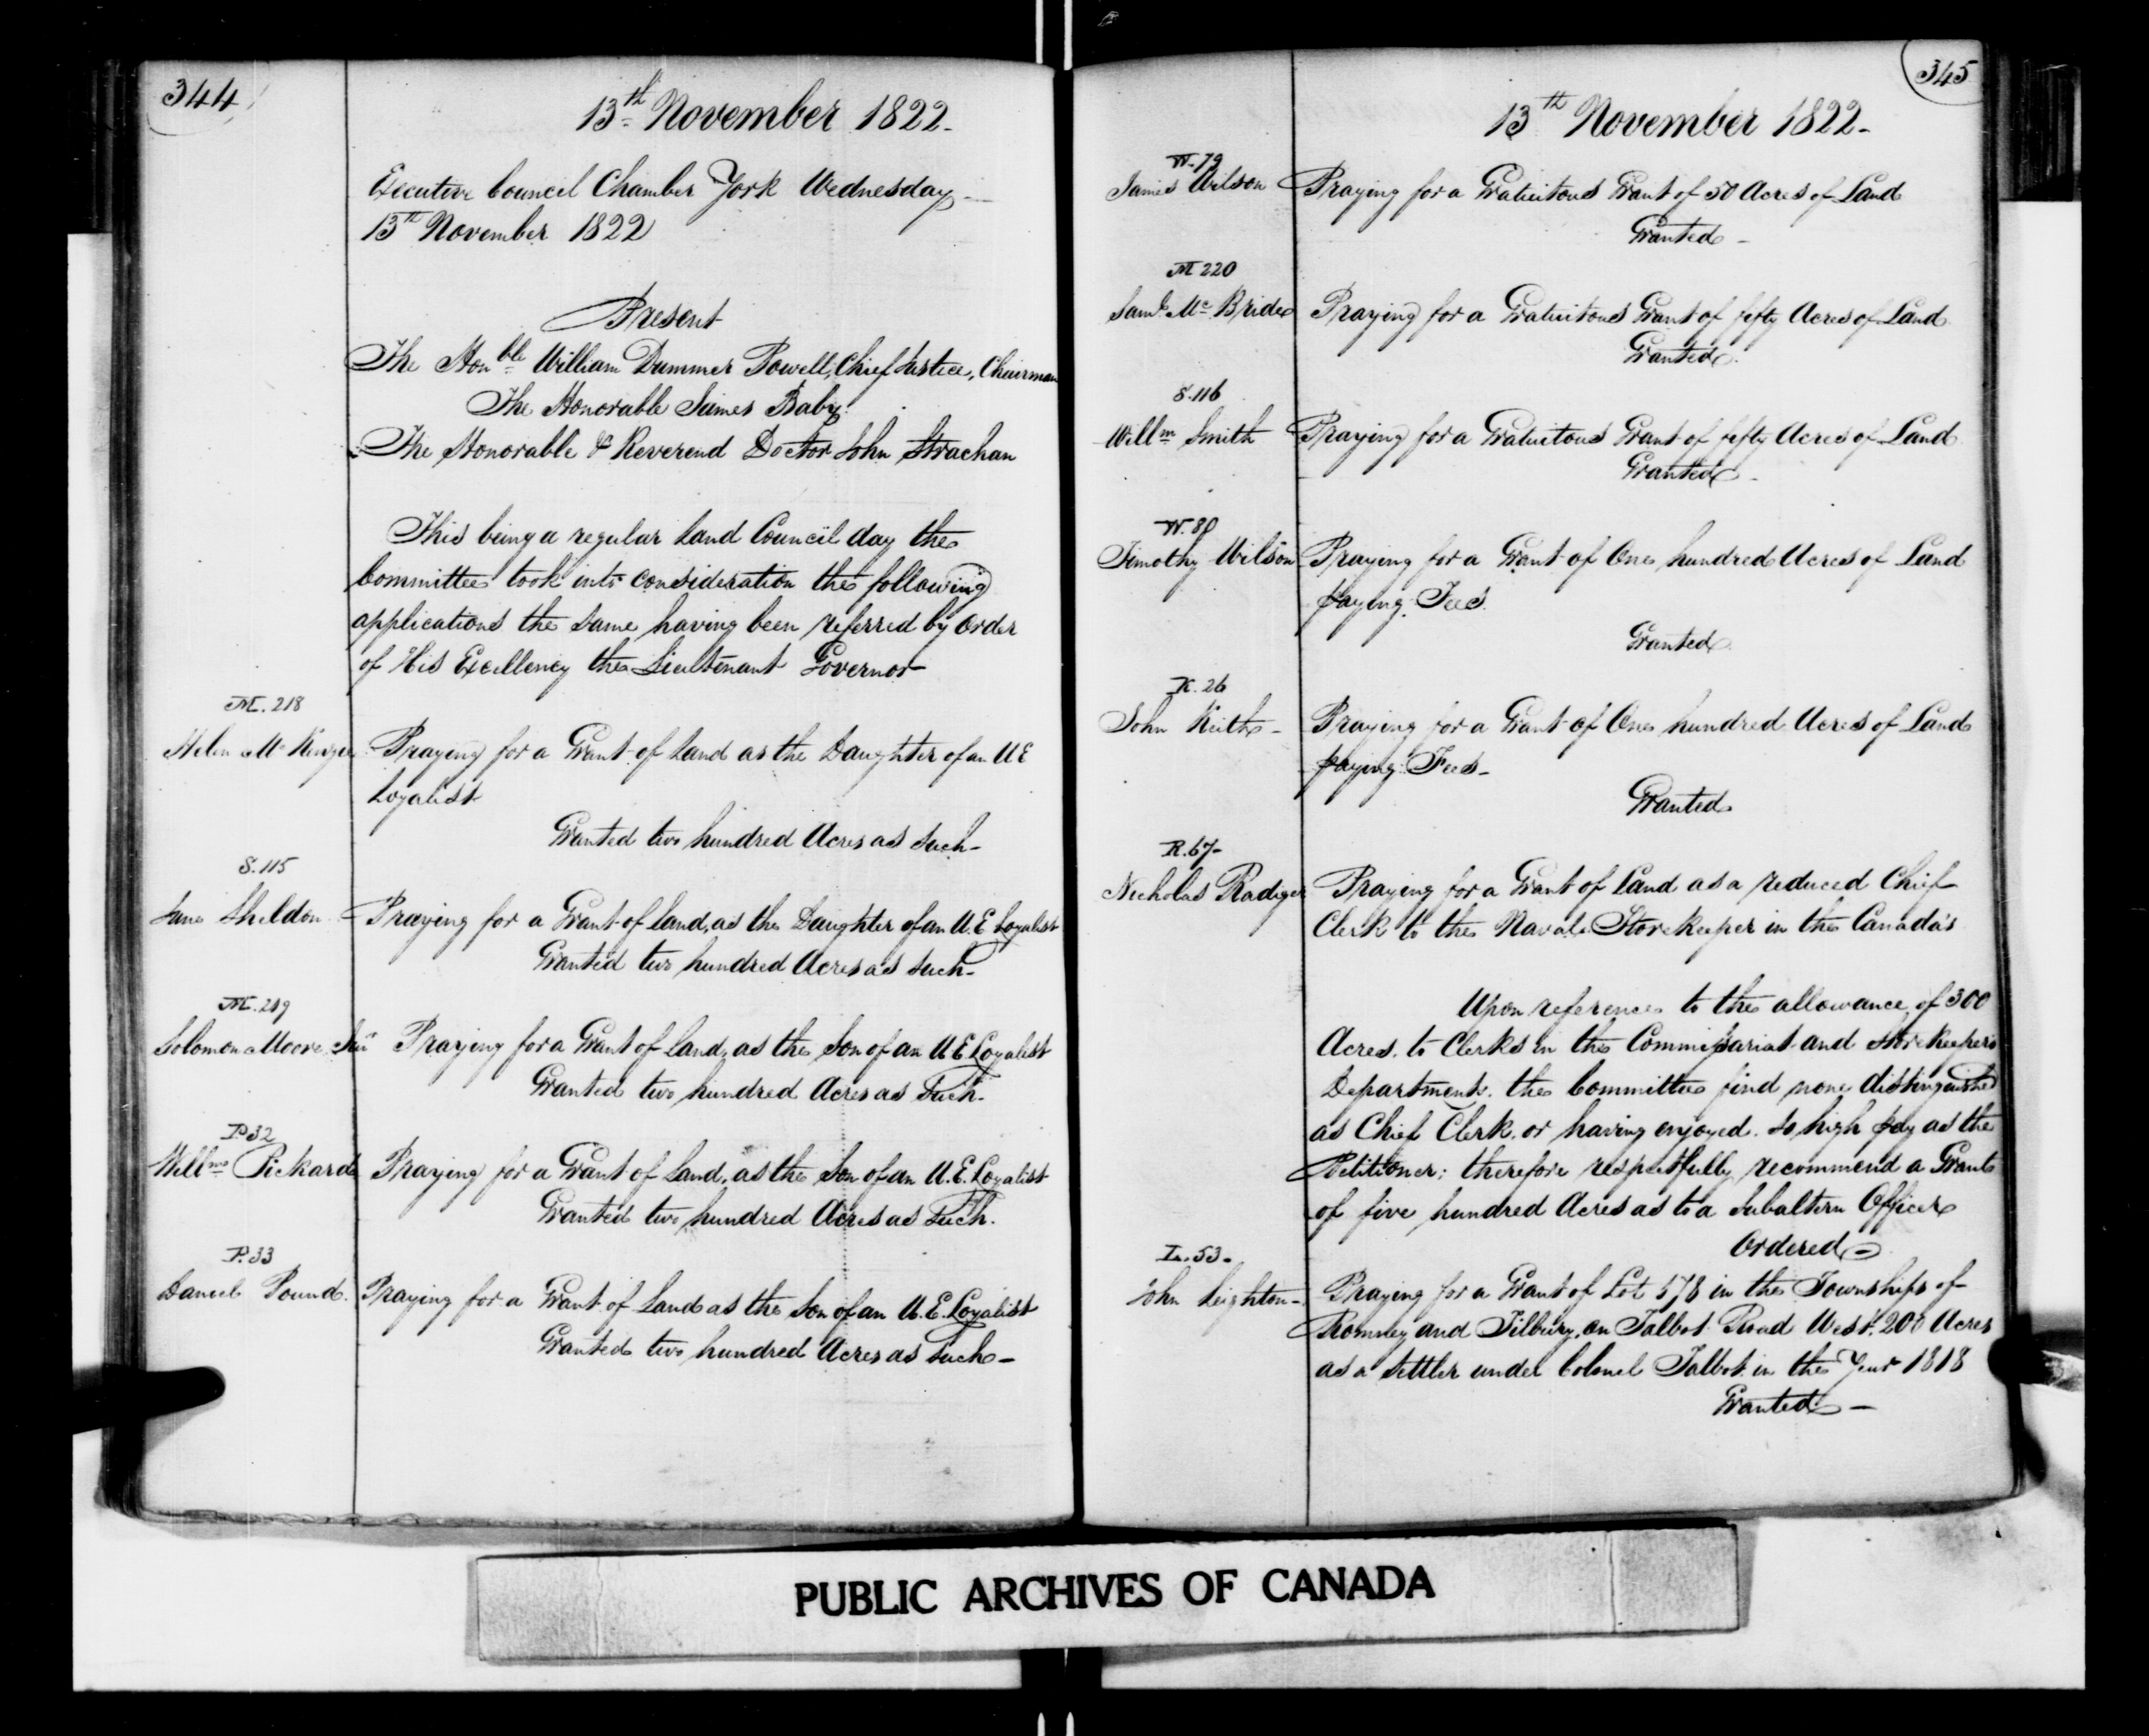 344
13th November 1822.
Executive Council Chamber York Wednesday
13th November 1822
Present
The Honble William Dummer Powell, Chief Justice, Chairman
The Honorable James Baby
The Honorable & Reverend Doctor John Strachan
This being a regular Land Council day the
Committee took into consideration the following
applications the same having been referred by order
of His Excellency the Lieutenant Governor
M. 218
Helen McKenzie Praying for a Grant of Land as the Daughter of an U E
Loyalist
Granted two hundred Acres as such-
S. 115
Jane Sheldon - Praying for a Grant of Land, as the Daughter of an U. E Loyalist
Granted two hundred Acres as such-
M. 219
Solomon Moore, Praying for a Grant of Land, as the Son of an U E Loyalist
Granted two hundred Acres as Such.
P 32
Willm Pickard Praying for a Grant of Land, as the Son of an U. E. Loyalist
Granted two hundred Acres as Such.
P. 33
Daniel Pound. Praying for a Grant of Land as the Son of an U. E. Loyalist
Granted two hundred Acres as such-
345
13th November 1822-
W. 79
James Wilson Praying for a Gratuitous Grant of 50 Acres of Land
Granted -
M 220
Saml McBride Praying for a Gratuitous Grant of fifty Acres of Land
Granted.
S. 116
Willm Smith Praying for a Gratuitous Grant of fifty Acres of Land
Granted -
W. 80
Timothy Wilson Praying for a Grant of One hundred Acres of Land
paying Fees.
Granted
K. 26
John Keith - Praying for a Grant of One hundred Acres of Land
paying Fees-
Granted
R. 67-
Nicholas Radiger Praying for a Grant of Land as a reduced Chief
Clerk to the Naval Storekeeper in the Canada's
Upon reference to the allowance of 300
Acres. to Clerks in the Commissariat and Storekeeper's
Departments. the Committee find none distinguished
as Chief Clerk. or having enjoyed so high pay as the
Petitioner; therefore respectfully recommend a Grant
of five hundred Acres as to a Subaltern Officer
Ordered -
L. 53-
John Leighton- Praying for a Grant of Lot 178 in the Townships of
Romney and Tilbury, on Talbot Road West. 200 Acres
as a Settler under Colonel Talbot in the Year 1818
Granted -
PUBLIC ARCHIVES OF CANADA